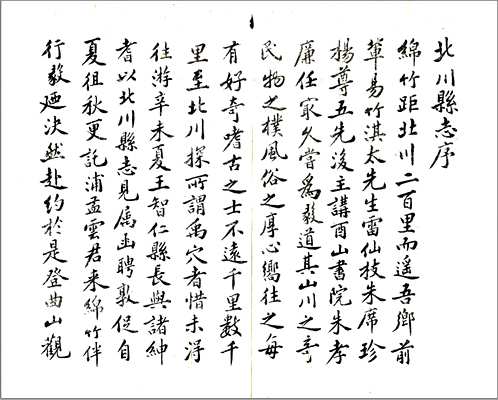 北川縣志序
綿竹距北川二百里而遥吾鄉前
輩易竹淇太先生雷仙枝朱席珍
楊尊五先後主講酉山書院朱孝
廉任最久嘗爲敎道其山川之奇
民物之樸風俗之厚心嚮往之每
有好奇嗜古之士不遠千里數千
里至北川探所謂禹穴者惜未得
往游辛未夏王智仁縣長與諸紳
耆以北川縣志見屬函聘敦促自
夏徂秋更託浦孟雲君来綿竹伴
行敎廼決然赴約於是登曲山觀